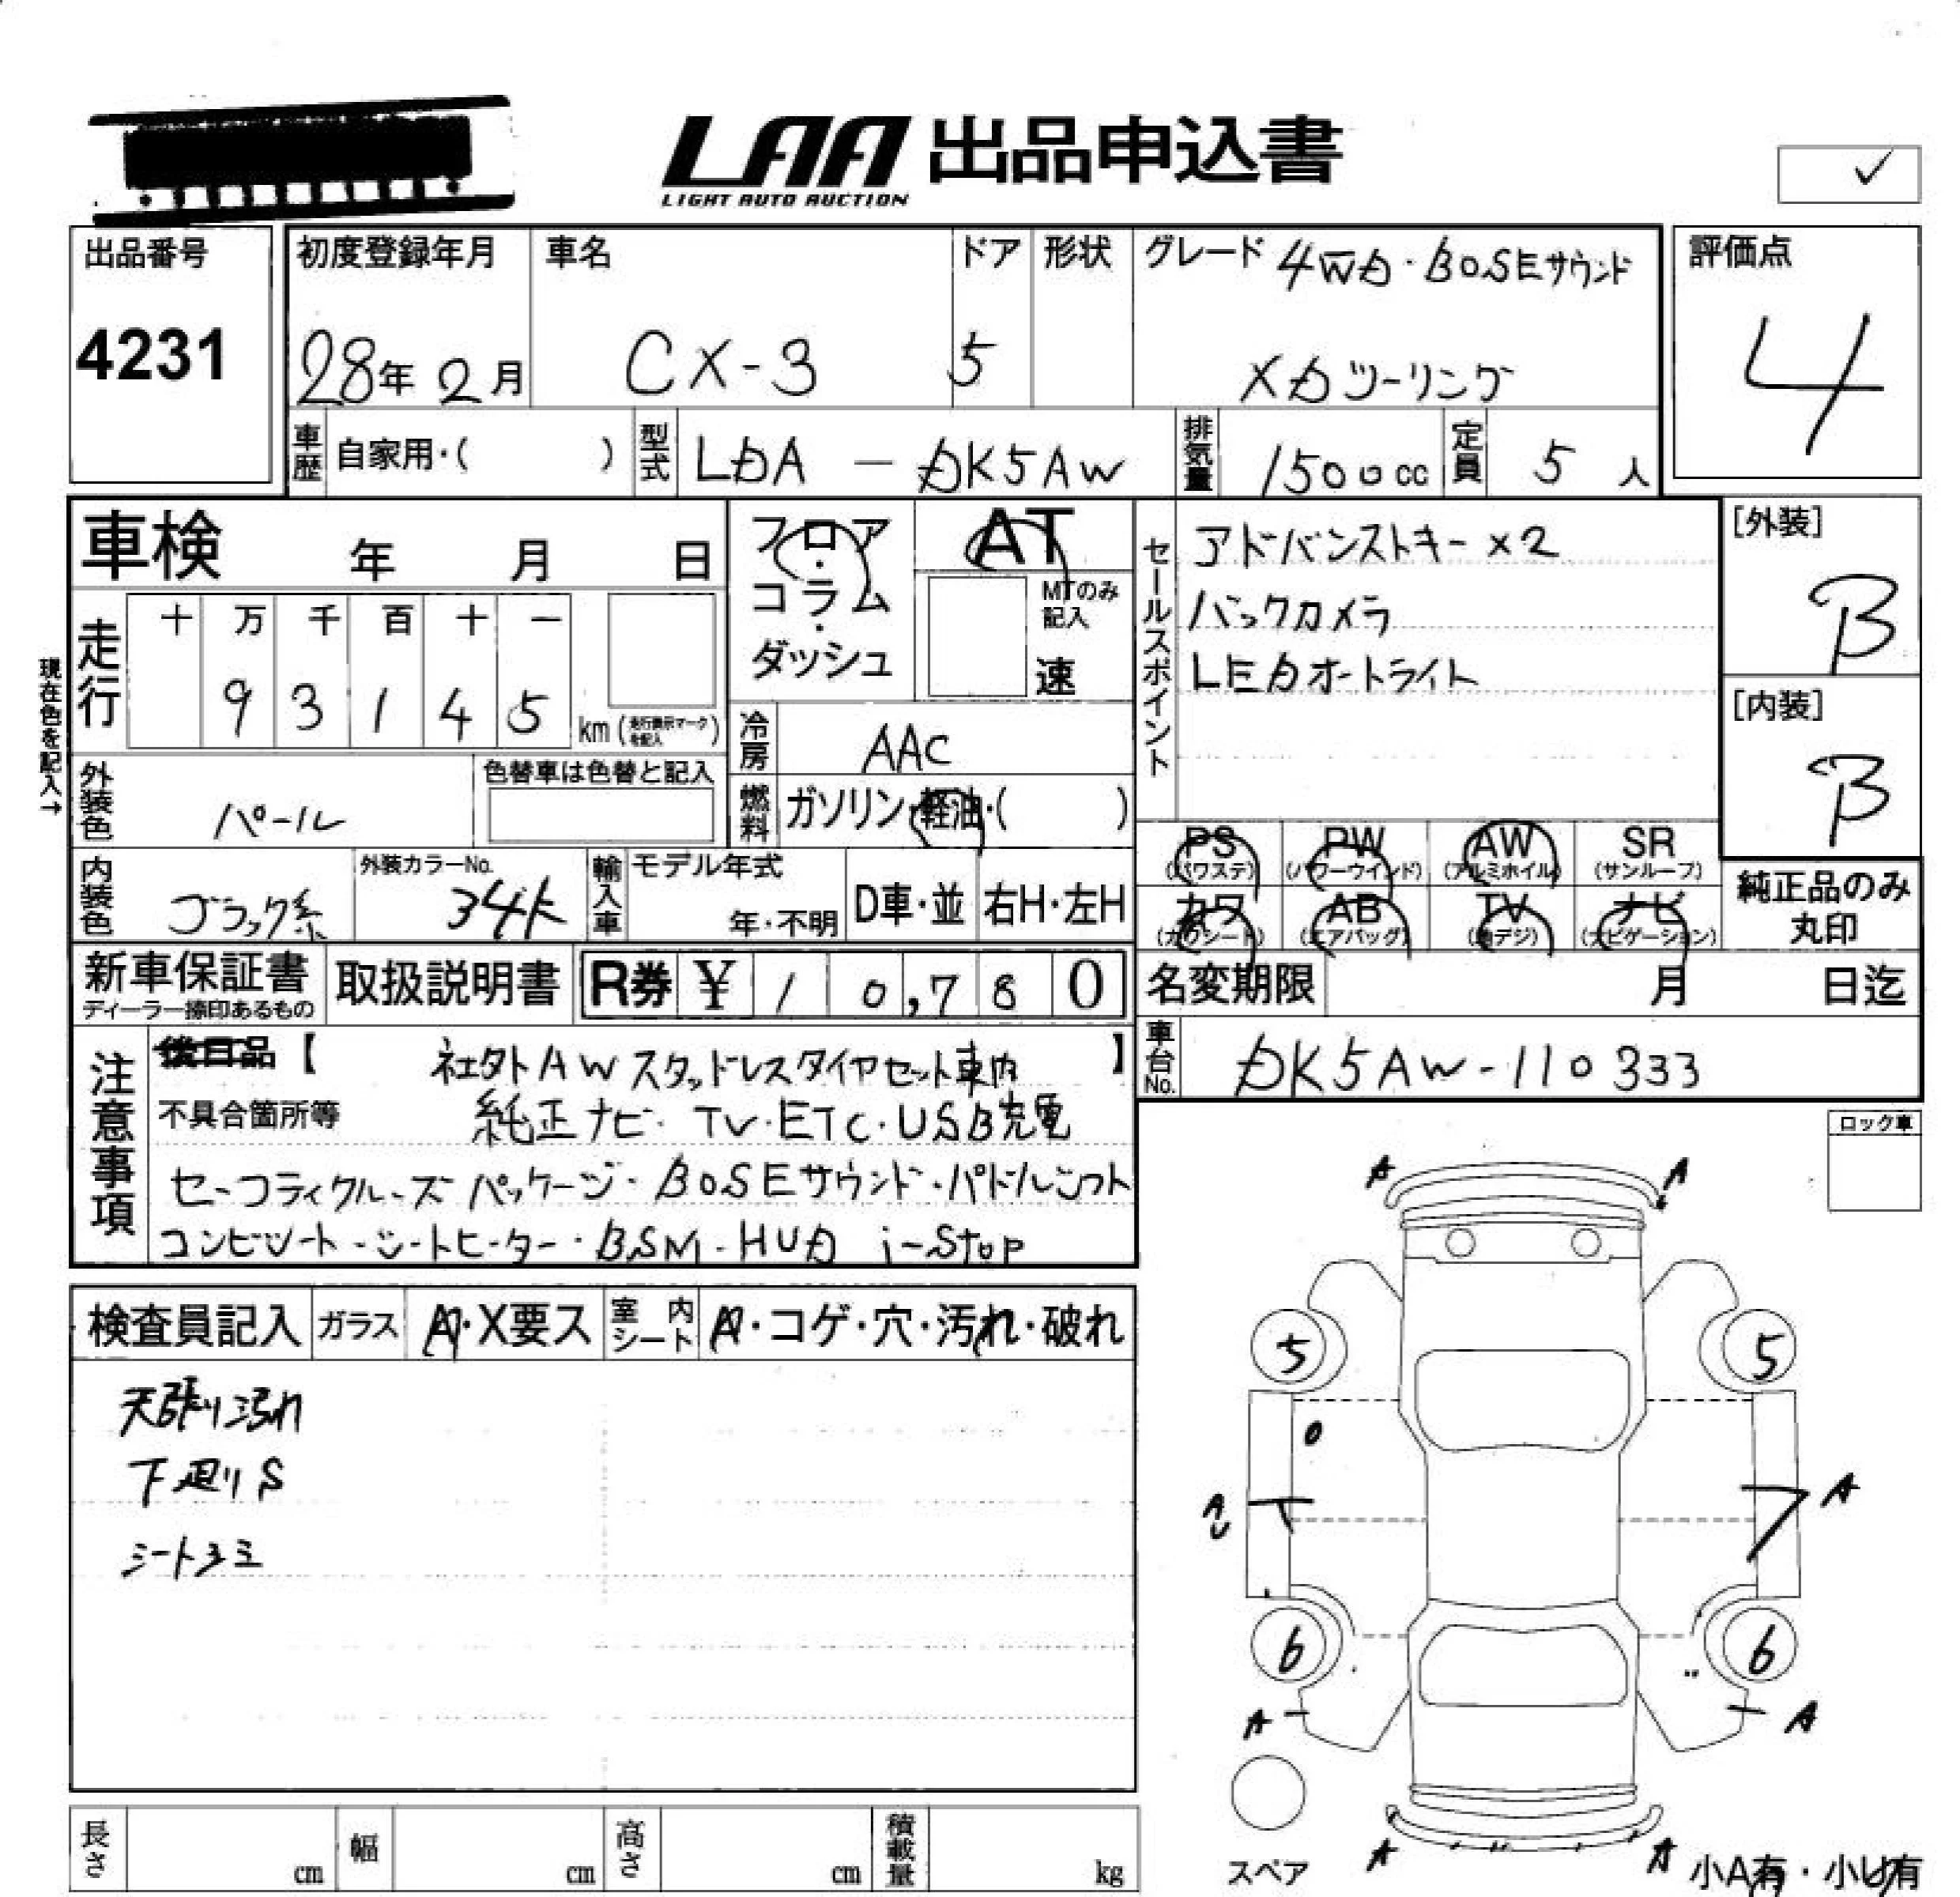 LAA 出品申込書
LIGHT AUTO AUCTION
✓
出品番号
4231
初度登録年月
28年 2月
車名
CX-3
ドア
5
形状
グレード 4WD・BOSEサウンド
XDツーリング
評価点
4
車歴 自家用・( )
型式 LDA - DK5AW
排気量 1500cc
定員 5人
車検 年 月 日
現在色を記入→
走行 十 万 千 百 十 一
9 3 1 4 5 km(走行表示マークを記入)
フロア・コラム・ダッシュ
AT
MTのみ記入
速
冷房 AAC
燃料 ガソリン・軽油・( )
セールスポイント
アドバンストキー×2
バックカメラ
LEDオートライト
[外装]
B
[内装]
B
外装色 パール
色替車は色替と記入
内装色 ブラック系
外装カラーNo.
34K
輸入車 モデル年式
年・不明
D車・並
右H・左H
PS (パワステ)
PW (パワーウインド)
AW (アルミホイル)
SR (サンルーフ)
カワ (カワシート)
AB (エアバッグ)
TV (地デジ)
ナビ (ナビゲーション)
純正品のみ
丸印
新車保証書
ディーラー捺印あるもの
取扱説明書
R券 ¥ 1 0,7 8 0
名変期限 月 日迄
車台No. DK5AW-110333
注意事項
後日品【 社外AWスタッドレスタイヤセット車内 】
不具合箇所等 純正ナビ・TV・ETC・USB充電
セーフティクルーズパッケージ・BOSEサウンド・パドルシフト
コンビシート・シートヒーター・BSM・HUD i-stop
ロック車
検査員記入
ガラス A・X要ス
室内シート A・コゲ・穴・汚れ・破れ
天張り汚れ
下廻りS
シートスミ
A A
5 5
A
U
A
6 6
A A
A A
スペア
小A有・小U有
長さ cm
幅 cm
高さ cm
積載量 kg